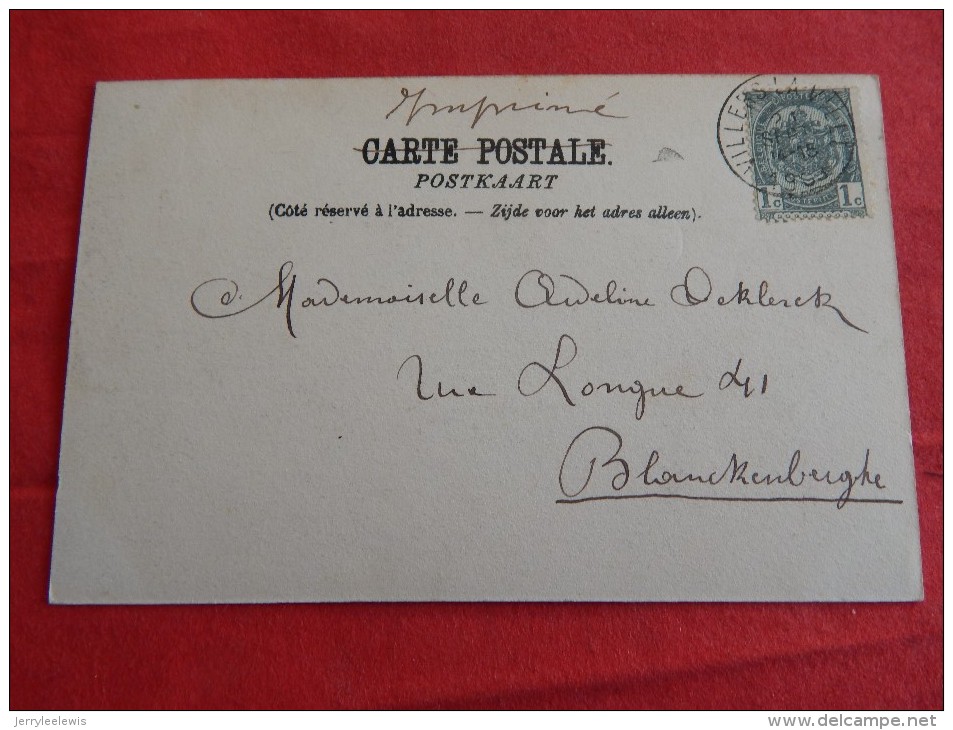 Imprimé
CARTE POSTALE.
POSTKAART
(Côté réservé à l'adresse. — Zijde voor het adres alleen).
1c 1c
Mademoiselle Adeline Deklerck
Rue Longue 41
Blanckenberghe
jerryleelewis
www.delcampe.net